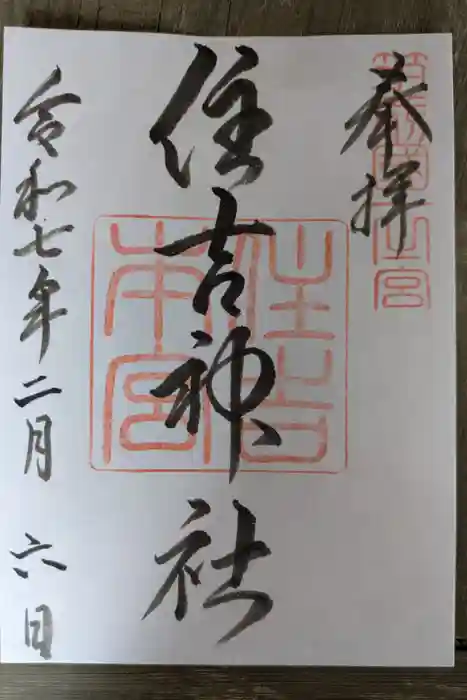 奉拝
住吉神社
住吉
本宮
令和七年二月六日